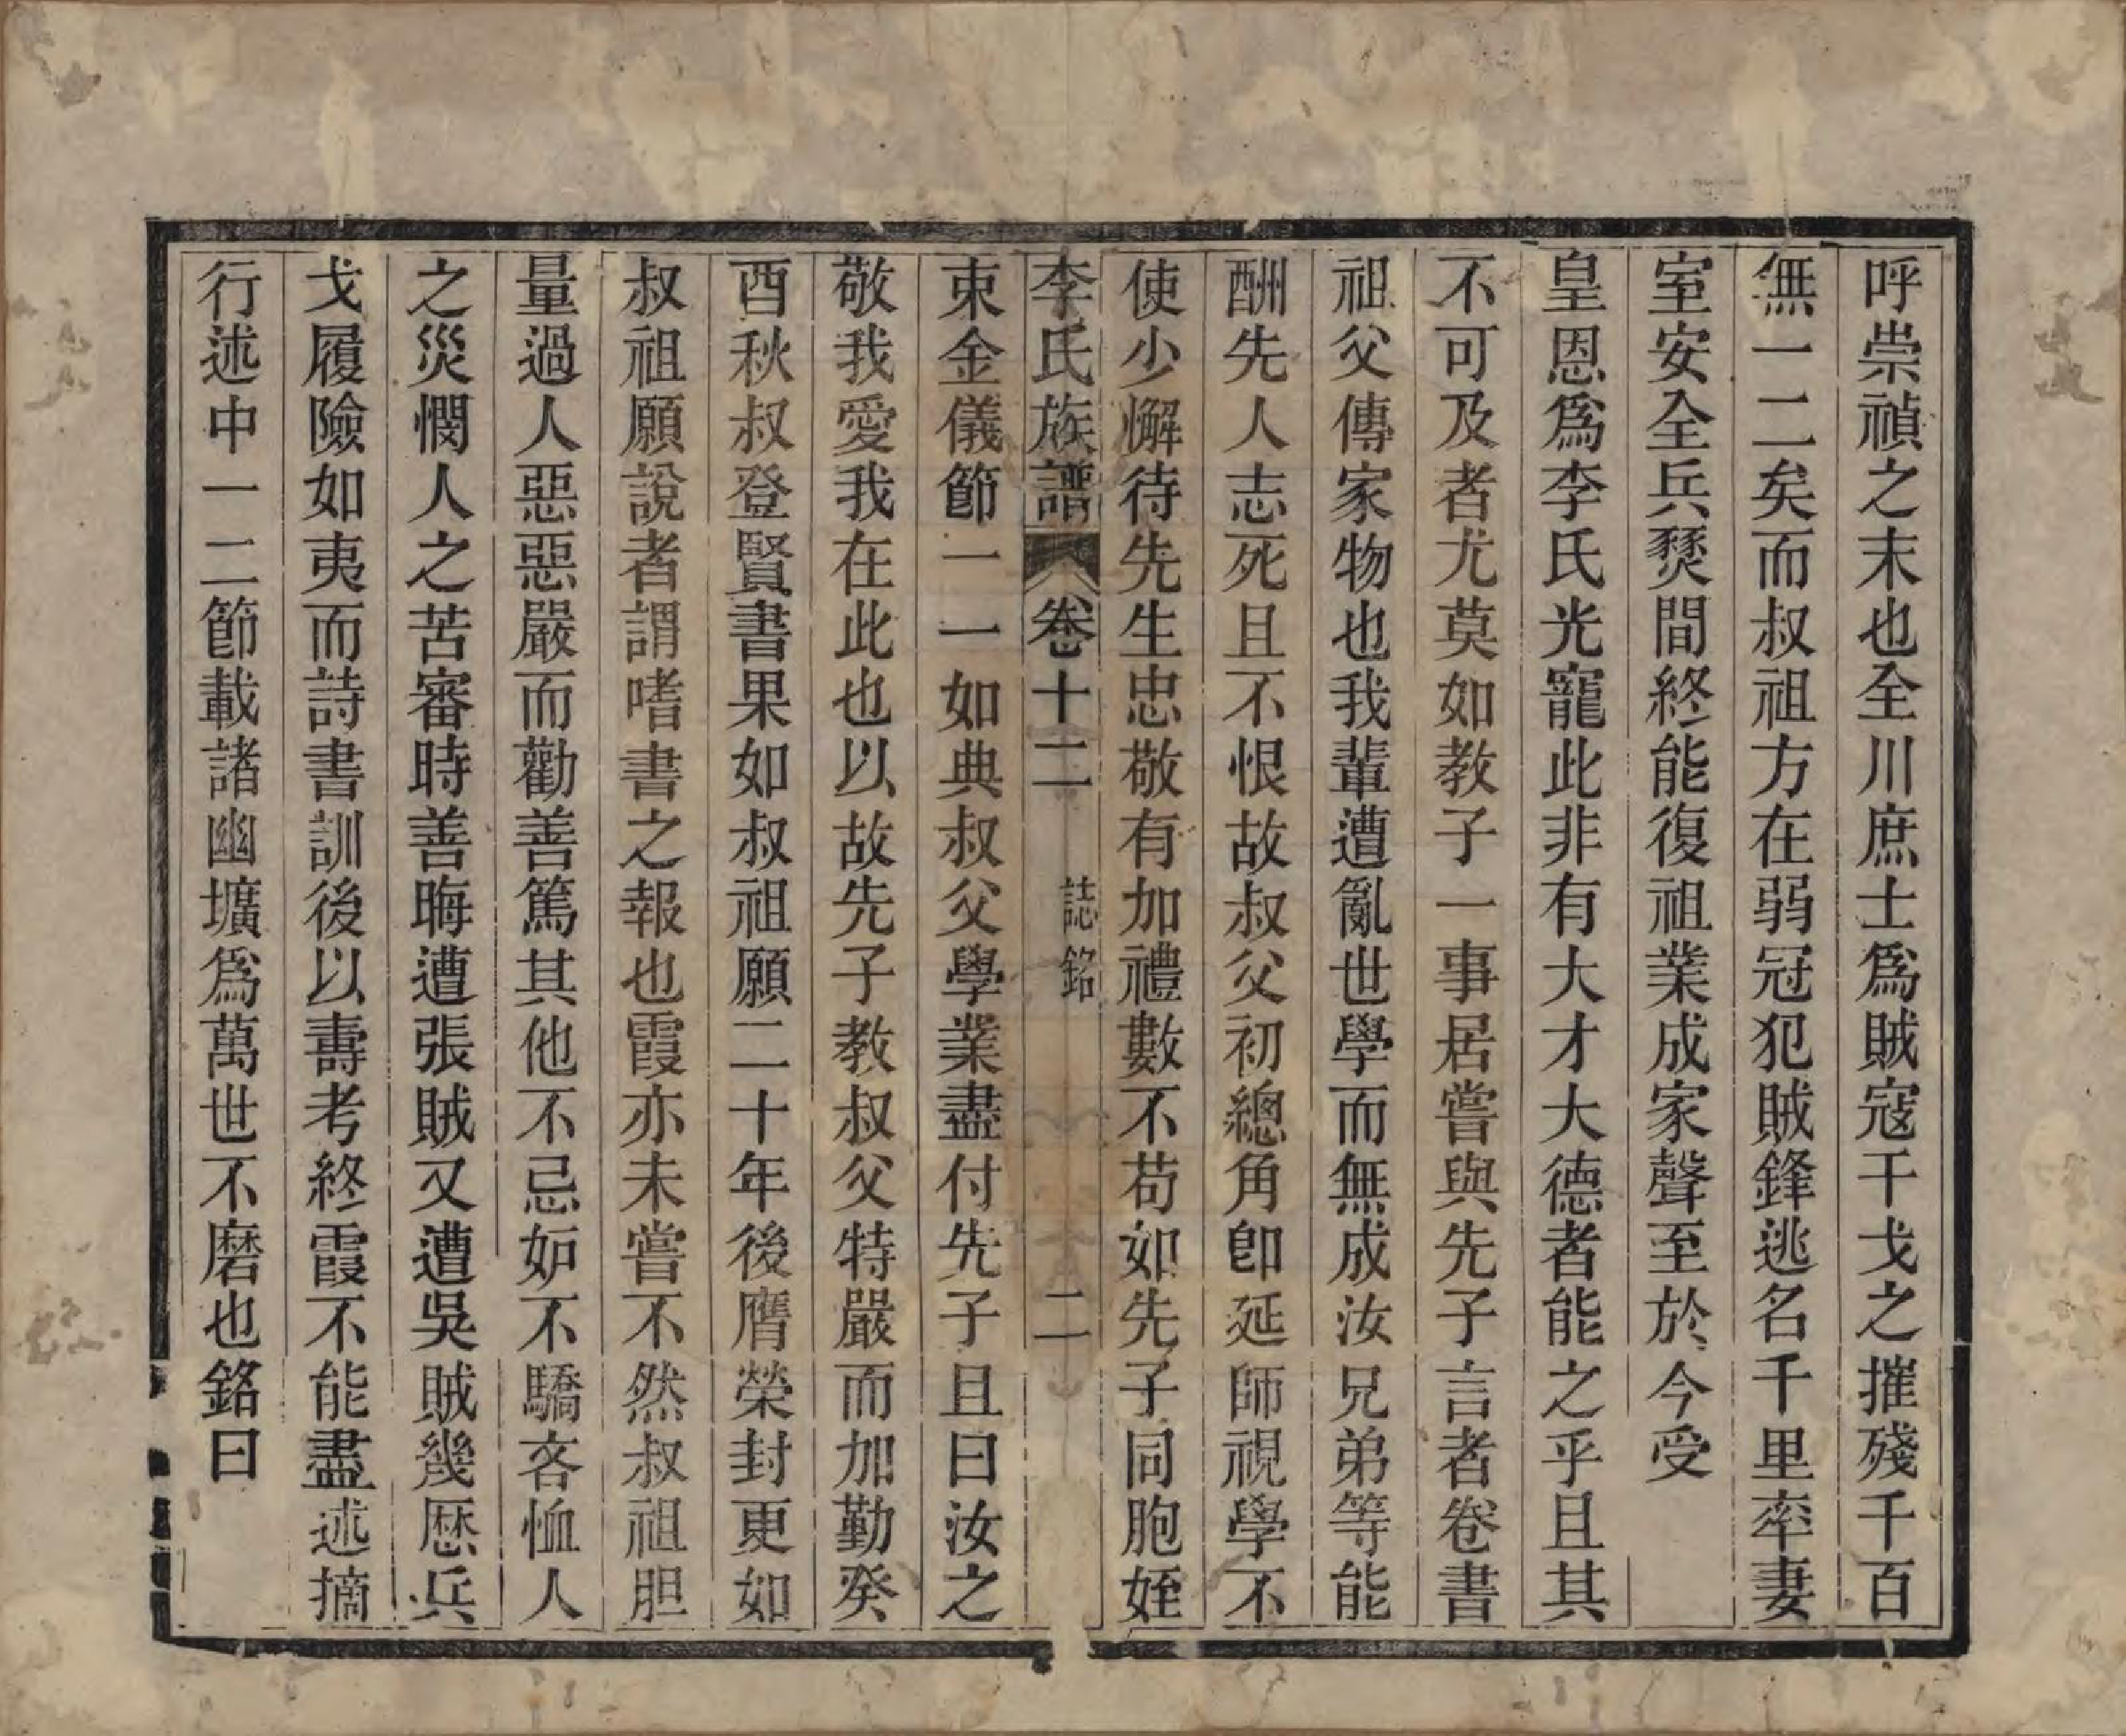 呼崇禎之末也全川庶士爲賊寇干戈之摧殘千百
無一二矣而叔祖方在弱冠犯賊鋒逃名千里率妻
室安全兵燹間終能復祖業成家聲至於今受
皇恩爲李氏光寵此非有大才大德者能之乎且其
不可及者尤莫如教子一事居嘗與先子言者卷書
祖父傳家物也我輩遭亂世學而無成汝兄弟等能
酬先人志死且不恨故叔父初總角卽延師視學不
使少懈待先生忠敬有加禮數不苟如先子同胞姪
李氏族譜 卷十二 誌銘 二
束金儀節一一如典叔父學業盡付先子且曰汝之
敬我愛我在此也以故先子教叔父特嚴而加勤癸
酉秋叔登賢書果如叔祖願二十年後膺榮封更如
叔祖願說者謂嗜書之報也霞亦未嘗不然叔祖胆
量過人惡惡嚴而勸善篤其他不忌妒不驕吝恤人
之災憫人之苦審時善晦遭張賊又遭吳賊幾歷兵
戈履險如夷而詩書訓後以壽考終霞不能盡述摘
行述中一二節載諸幽壙爲萬世不磨也銘曰